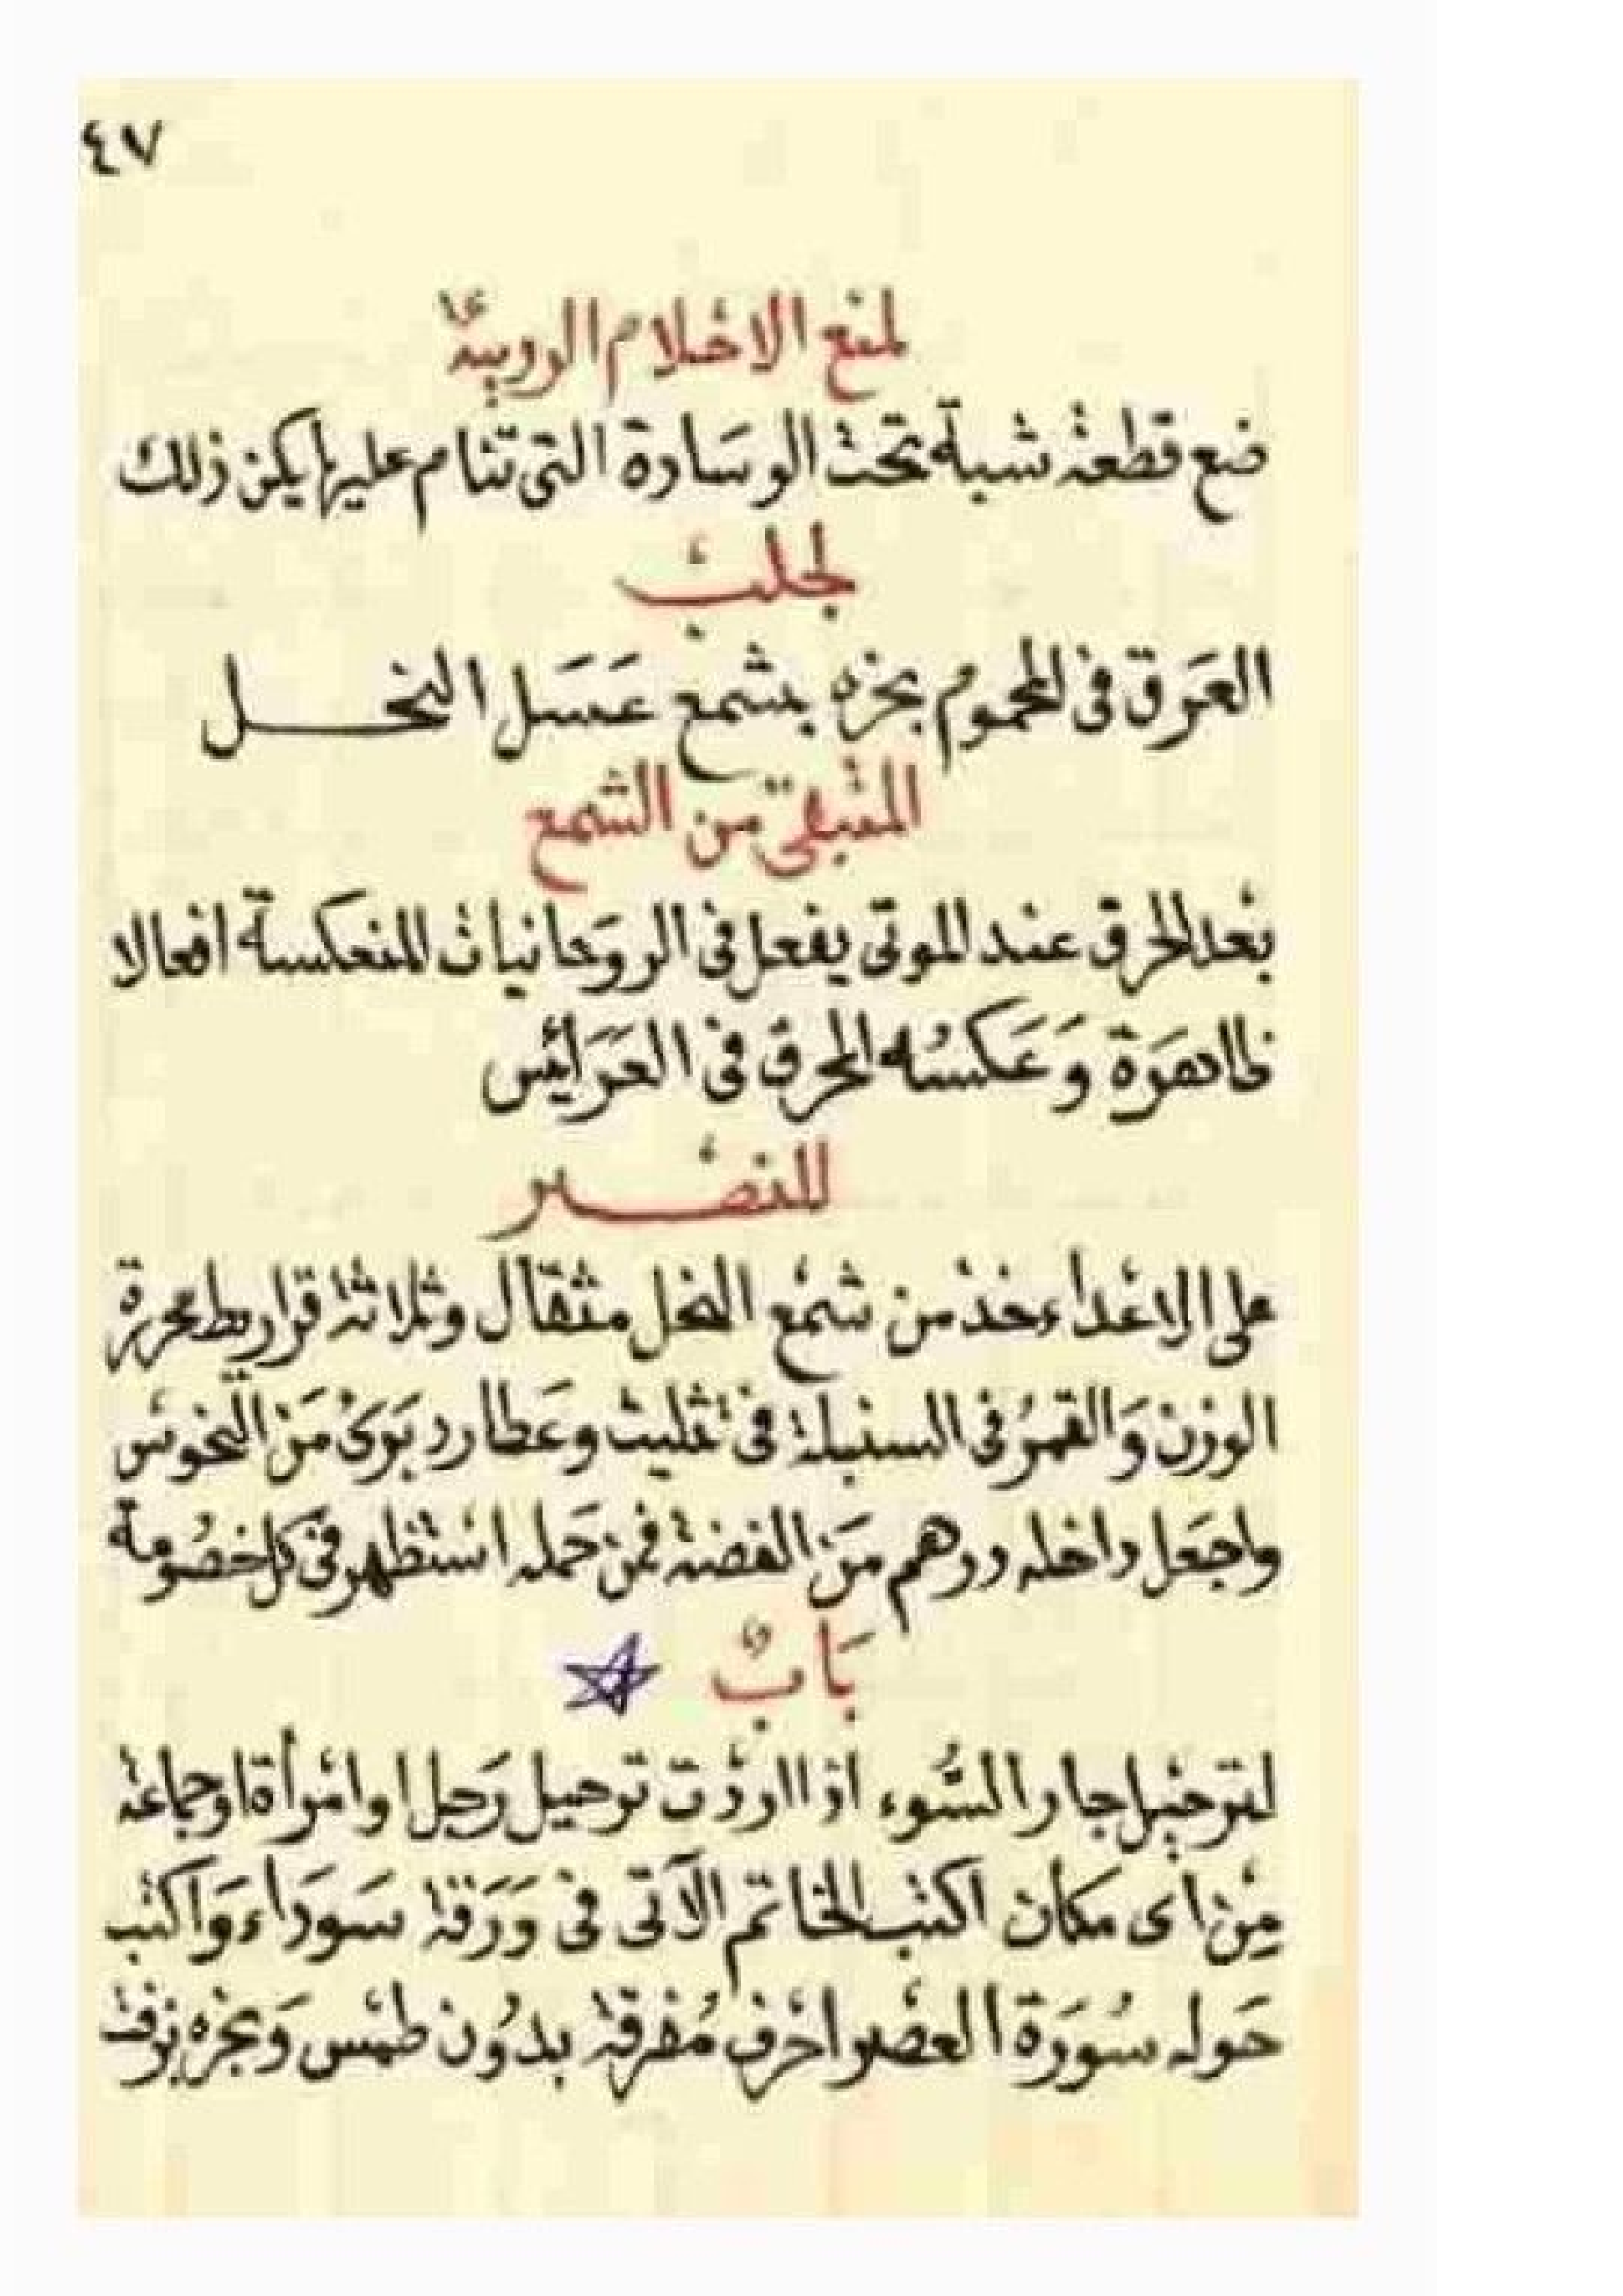 ٤٧
لمنع الاحلام الرديئة
ضع قطعة شبة تحت الوسادة التى تنام عليها يكن ذلك
لجلب
العَرَق فى المحموم بخره بشمع عَسَل النحل
المتبقى من الشمع
بَعْد الحرق عند الموتى يفعل فى الروَحانيات المنعكسة افعالا
ظاهرَة وَعَكسُه الحرق فى العَرَائِس
للنصر
على الاعْداء خذ من شمع النحل مثقال وثلاثة قراريط محررة
الوزن وَالقمرُ فى السنبلة فى تثليث وعَطارد بَرىْ مَن النحُوس
واجعَل داخله درهم مَن الفضة فمن حمَله استظهر فى كل خصُومة
بَابٌ
لترحيل جار السُّوء اذا اردْت ترحيل رَجل او امْرأة او جماعة
مِن اى مكان اكتب الخاتم الآتى فى وَرَقة سَودَاء وَاكتب
حَوله سُورَة العصْر احْرف مُفرقة بدُون طمْس وَبخره بزفت